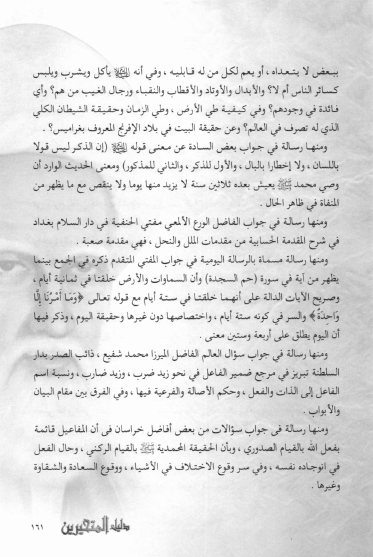 ببعض لا يتعداه ، أو يعم لكل من له قابليه ، وفي أنه ﷺ يأكل ويشرب ويلبس
كسائر الناس أم لا؟ والأبدال والأوتاد والأقطاب والنقباء ورجال الغيب من هم؟ وأي
فائدة في وجودهم؟ وفي كيفية طي الأرض ، وطي الزمان وحقيقة الشيطان الكلي
الذي له تصرف في العالم؟ وعن حقيقة البيت في بلاد الإفرنج المعروف بغراميس؟ .
ومنها رسالة في جواب بعض السادة عن معنى قوله ﷺ (إن الذكر ليس قولا
باللسان ، ولا إخطارا بالبال ، والأول للذكر ، والثاني للمذكور) ومعنى الحديث الوارد أن
وصي محمد ﷺ يعيش بعده ثلاثين سنة لا يزيد منها يوما ولا ينقص مع ما يظهر من
المنفاة في ظاهر الحال .
ومنها رسالة في جواب الفاضل الورع الألمعي مفتي الحنفية في دار السلام بغداد
في شرح المقدمة الحسابية من مقدمات الملل والنحل ، فهي مقدمة صعبة .
ومنها رسالة مسماة بالرسالة اليومية في جواب المفتي المتقدم ذكره في الجمع بينما
يظهر من آية في سورة (حم السجدة) وأن السماوات والأرض خلقتا في ثمانية أيام ،
وصريح الآيات الدالة على أنهما خلقتا في ستة أيام مع قوله تعالى ﴿وَمَا أَمْرُنَا إِلَّا
وَاحِدَةٌ﴾ والسر في كونه ستة أيام ، واختصاصها دون غيرها وحقيقة اليوم ، وذكر فيها
أن اليوم يطلق على أربعة وستين معنى .
ومنها رسالة في جواب سؤال العالم الفاضل الميرزا محمد شفيع ، ذائب الصدر بدار
السلطنة تبريز في مرجع ضمير الفاعل في نحو زيد ضرب ، وزيد ضارب ، ونسبة اسم
الفاعل إلى الذات والفعل ، وحكم الأصالة والفرعية فيها ، وفي الفرق بين مقام البيان
والأبواب .
ومنها رسالة في جواب سؤالات من بعض أفاضل خراسان في أن المفاعيل قائمة
بفعل الله بالقيام الصدوري ، وبأن الحقيقة المحمدية ﷺ بالقيام الركني ، وحال الفعل
في انوجاده نفسه ، وفي سر وقوع الاختلاف في الأشياء ، ووقوع السعادة والشقاوة
وغيرها .
دليل المتحيرين ١٦١